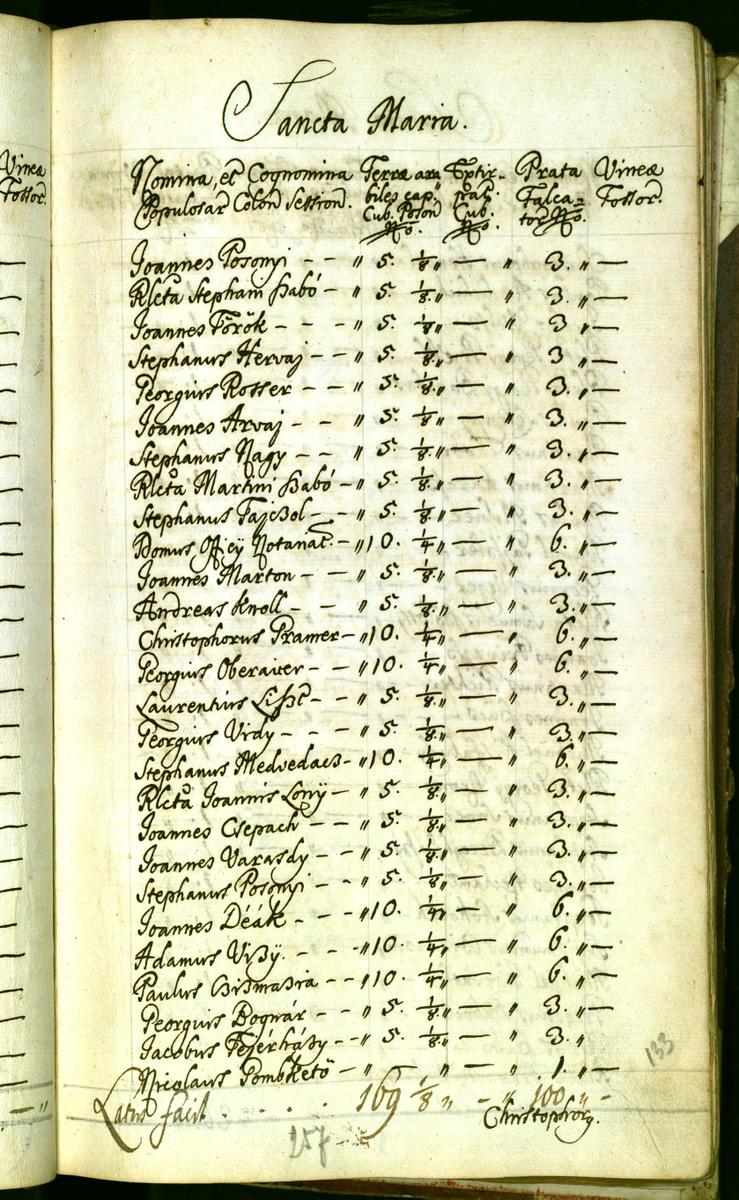 Vineæ
Fossor.
Sancta Maria.
Nomina, et Cognomina Terræ ara Extir- Prata Vineæ
Populosar. Colon. Session. biles cap. pat. Falca= Fossor.
Cub. Poson Cub. tor. No.
No. No.
Joannes Posonyi - - „ 5. 1/8 „ — „ 3. „ —
Rlcta Stephani Szabó - „ 5. 1/8 „ — „ 3. „ —
Joannes Török - - - „ 5. 1/8 „ — „ 3 „ —
Stephanus Hervaj - - „ 5. 1/8 „ — „ 3 „ —
Georgius Rosser - - „ 5. 1/8 „ — „ 3. „ —
Joannes Arvaj - - „ 5. 1/8 „ — „ 3. „ —
Stephanus Nagy - - „ 5. 1/8 „ — „ 3. „ —
Rlcta Martini Szabó - „ 5. 1/8 „ — „ 3. „ —
Stephanus Tajczol - - „ 5. 1/8 „ — „ 3. „ —
Domus Officÿ Notariat. - „ 10. 1/4 „ — „ 6. „ —
Joannes Marton - - „ 5. 1/8 „ — „ 3. „ —
Andreas Knoll - - „ 5. 1/8 „ — „ 3. „ —
Christophorus Pramer - „ 10. 1/4 „ — „ 6. „ —
Georgius - - „ 10. 1/4 „ — „ 6. „ —
Laurentius - - „ 5. 1/8 „ — „ 3. „ —
Georgius Vidy - - - „ 5. 1/8 „ — „ 3. „ —
Stephanus Medvedacs - „ 10. 1/4 „ — „ 6. „ —
Rlcta Joannis Lonÿ - - „ 5. 1/8 „ — „ 3. „ —
Joannes Csepach - - „ 5. 1/8 „ — „ 3. „ —
Joannes Varasdy - - „ 5. 1/8 „ — „ 3. „ —
Stephanus Posonyi - - „ 5. 1/8 „ — „ 3. „ —
Joannes Déák - - - „ 10. 1/4 „ — „ 6. „ —
Adamus Viszÿ. - - - „ 10. 1/4 „ — „ 6. „ —
Paulus Csiszmaszia - - „ 10. 1/4 „ — „ 6. „ —
Georgius Bognár - - „ 5. 1/8 „ — „ 3. „ —
Jacobus Fejérházy - - „ 5. 1/8 „ — „ 3. „
Nicolaus Gombkető - „ „ „ — „ 1. „ —
Latus facit . . . . . 169 1/8 „ - „ 100. „ -
Christophorq.
133
257